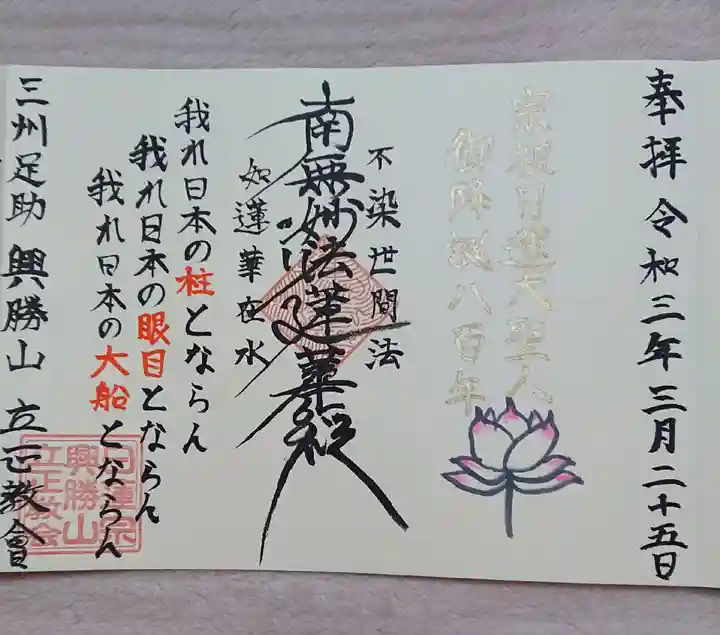 奉拝 令和三年三月二十五日
宗祖日蓮大聖人
御降誕八百年
不染世間法
南無妙法蓮華経
如蓮華在水
我れ日本の柱とならん
我れ日本の眼目とならん
我れ日本の大船とならん
三州足助 興勝山 立正教會
日蓮宗
興勝山
立正教会